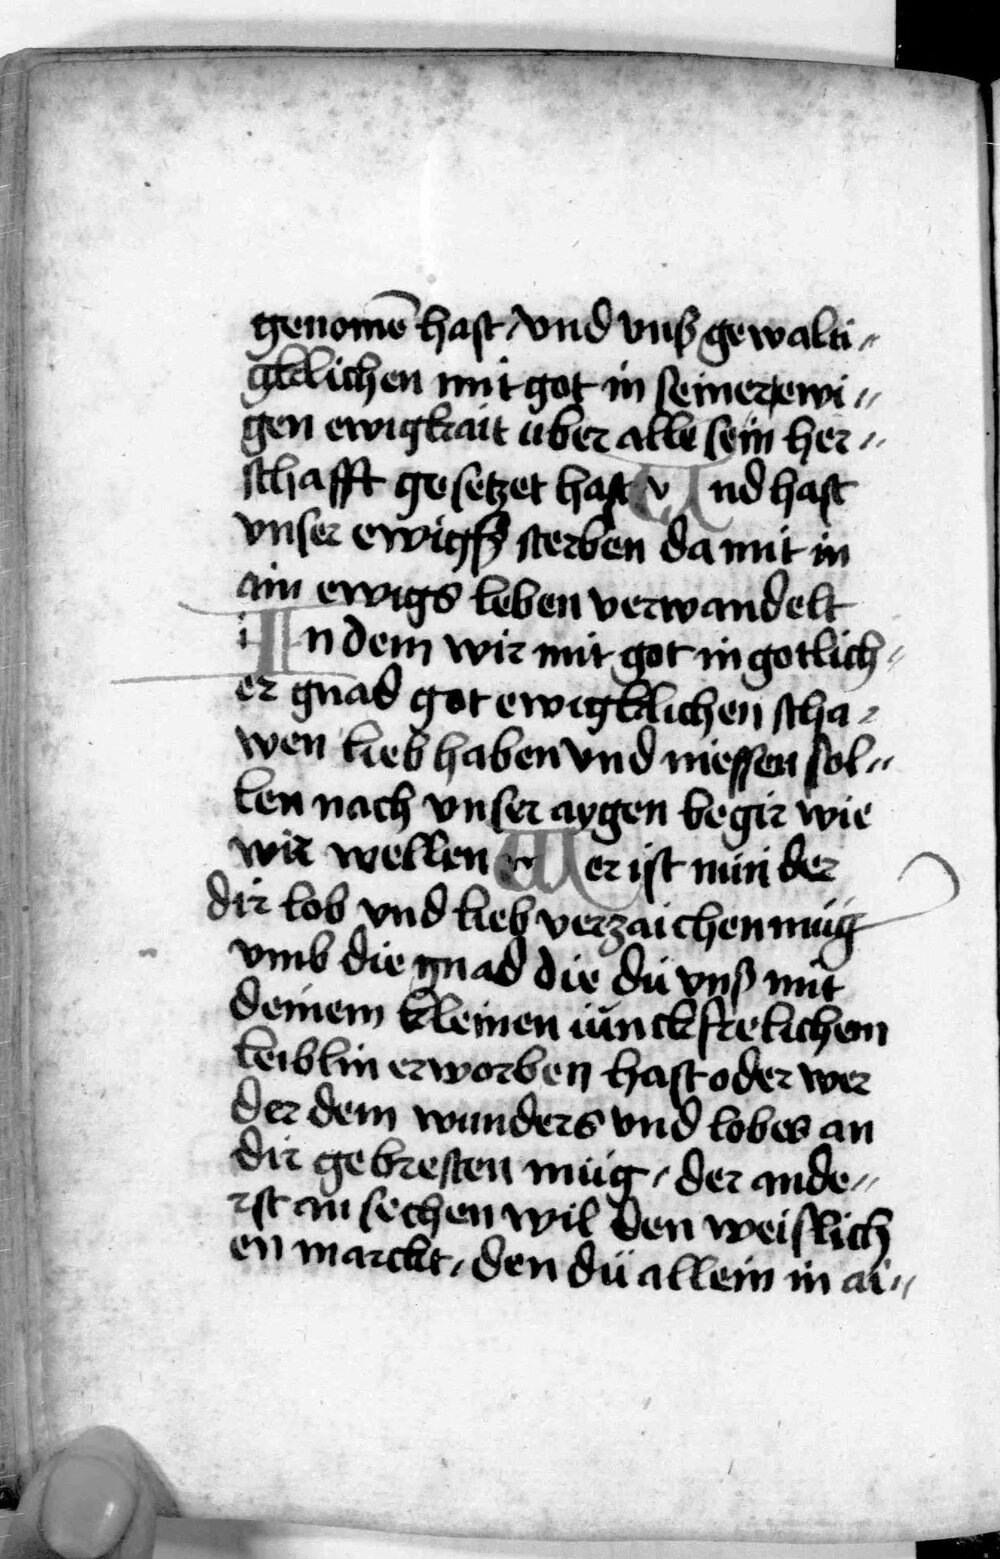 genomē hast / vnd vnß gewalti〃
gklichen mit got in seiner ewi〃
gen ewigkait über alle sein her〃
schafft gesetzet hast Vnd hast
vnser ewigß sterben da mit in
ain ewigs leben verwandelt
In dem wir mit got in gotlich〃
er gnad got ewigklichen scha〃
wen lieb haben vnd niessen sol〃
len nach vnser aygen begir wie
wir wellen Wer ist nun der
dir lob vnd lieb verzaichen müg
vmb die gnad die dü vnß mit
deinem kleinen iünckfrelichem
leiblin erworben hast oder wer
der dem wunders vnd lobes an
dir gebresten müg / der ande〃
rst an sechen wil den weislich
en marckt / den dü allein in ai〃